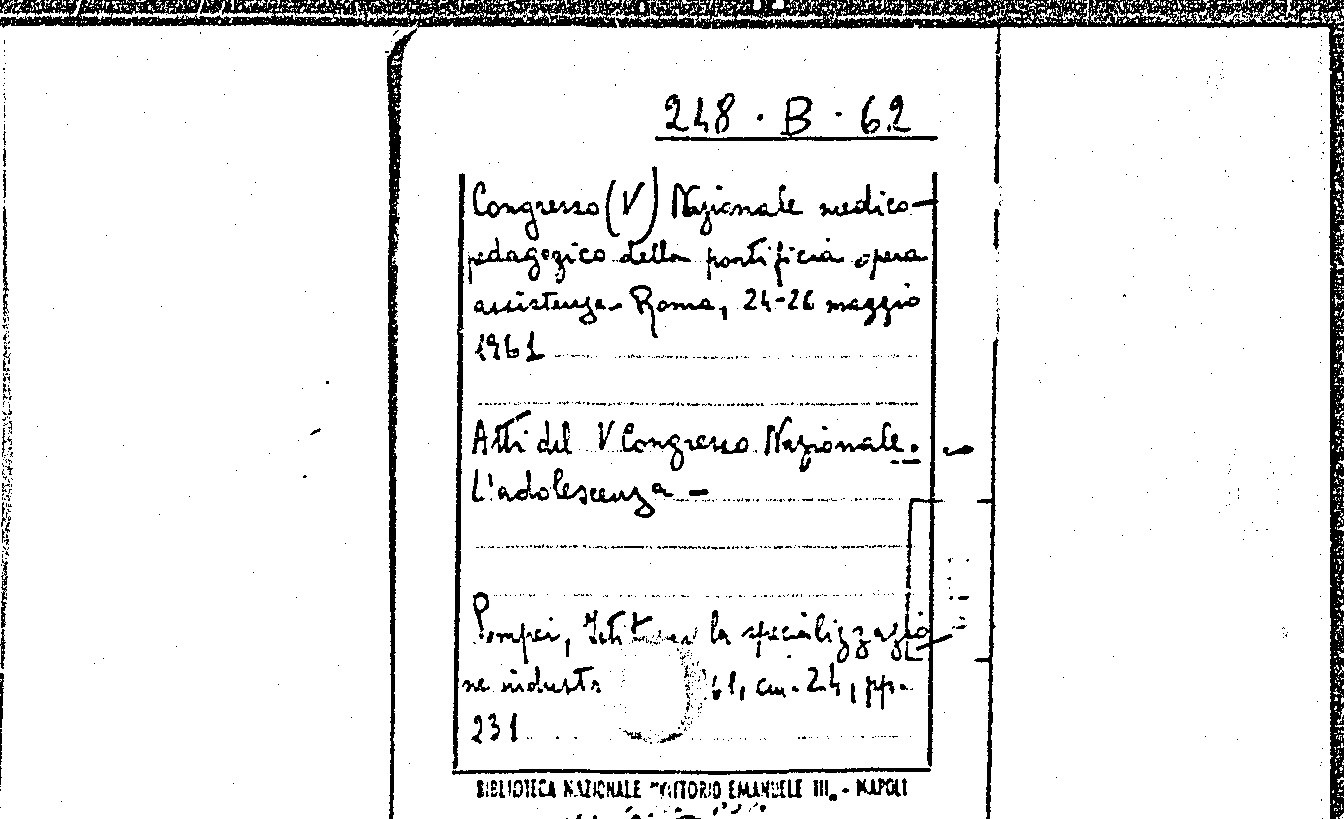 248 · B · 62
Congresso (V) Nazionale medico-
pedagogico della pontificia opera
assistenza. Roma, 24-26 maggio
1961
Atti del V Congresso Nazionale. -
L'adolescenza -
Pompei, la specializzazio
ne 61, cm. 24, pp.
231
BIBLIOTECA NAZIONALE "VITTORIO EMANUELE III„ - NAPOLI